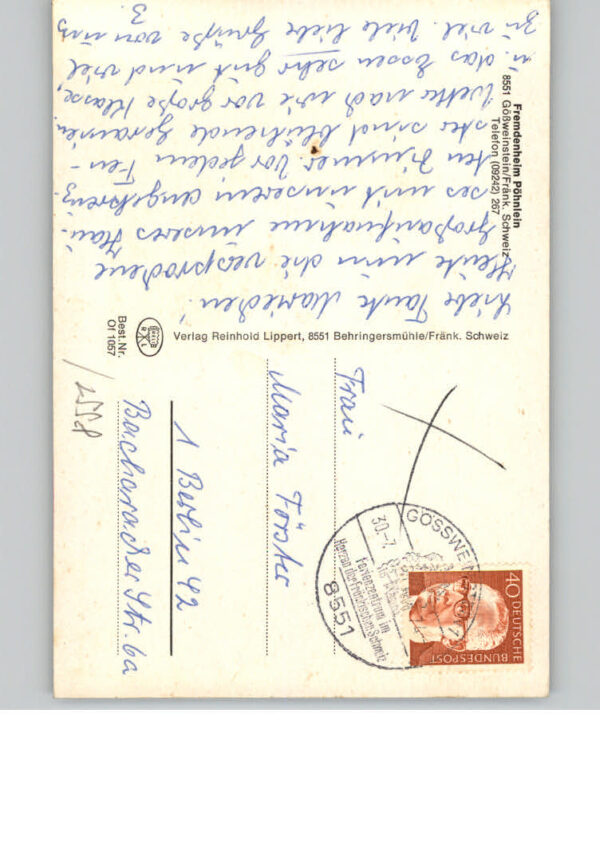 Fremdenheim Pöhnlein
8551 Gößweinstein/Fränk. Schweiz
Telefon (09242) 267
Liebe Tante Mariechen!
Heute nun die versprochene
Großaufnahme unseres Hau-
ses mit unserem angekreuz-
ten Zimmer. Vor jedem Fen-
ster sind blühende Geranien.
Wetter nach wie vor große Klasse,
u. das Essen sehr gut und viel
zu viel. Viele liebe Grüße von uns
3.
Verlag Reinhold Lippert, 8551 Behringersmühle/Fränk. Schweiz
Best.Nr.
Of 1057
Frau
Maria Förster
1 Berlin 42
Bacharacher Str. 6a
GÖSSWEIN
30.-7.
Ferienzentrum im
Herzen der Fränkischen Schweiz
8551
40
DEUTSCHE
BUNDESPOST